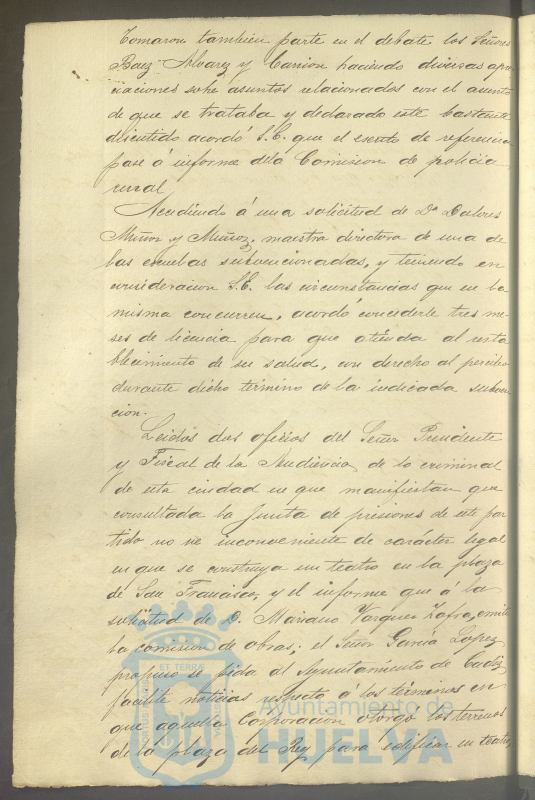 Tomaron tambien parte en el debate los Señores
Baez Alvarez y Carrion haciendo diversas apre
ciaciones sobre asuntos relacionados con el asunto
de que se trataba y declarado este bastante
discutido acordó S.E. que el escrito de referencia
pase á informe de la Comision de policia
rural
Accediendo á una solicitud de Dª Dolores
Muñoz y Muñoz, maestra directora de una de
las escuelas subvencionadas, y teniendo en
consideracion S.E. las circunstancias que en la
misma concurren, acordó concederle tres me-
ses de licencia para que atienda al resta
blecimiento de su salud, con derecho al percibo
durante dicho termino de la indicada subven
cion.
Leidos dos oficios del Señor Presidente
y Fiscal de la Audiencia de lo criminal
de esta ciudad en que manifiestan que
consultada la Junta de prisiones de este par
tido no ve inconveniente de carácter legal
en que se construya un teatro en la plaza
de San Francisco, y el informe que á la
solicitud de D. Mariano Vazquez Zafra, emite
la comision de obras; el Señor Garcia Lopez
propuso se pida al Ayuntamiento de Cadiz
facilite noticias respecto á los términos en
que aquella Corporacion otorgó los terrenos
de la plaza del Rey para edificar un teatro,
ET TERRÆ
Ayuntamiento de
HUELVA